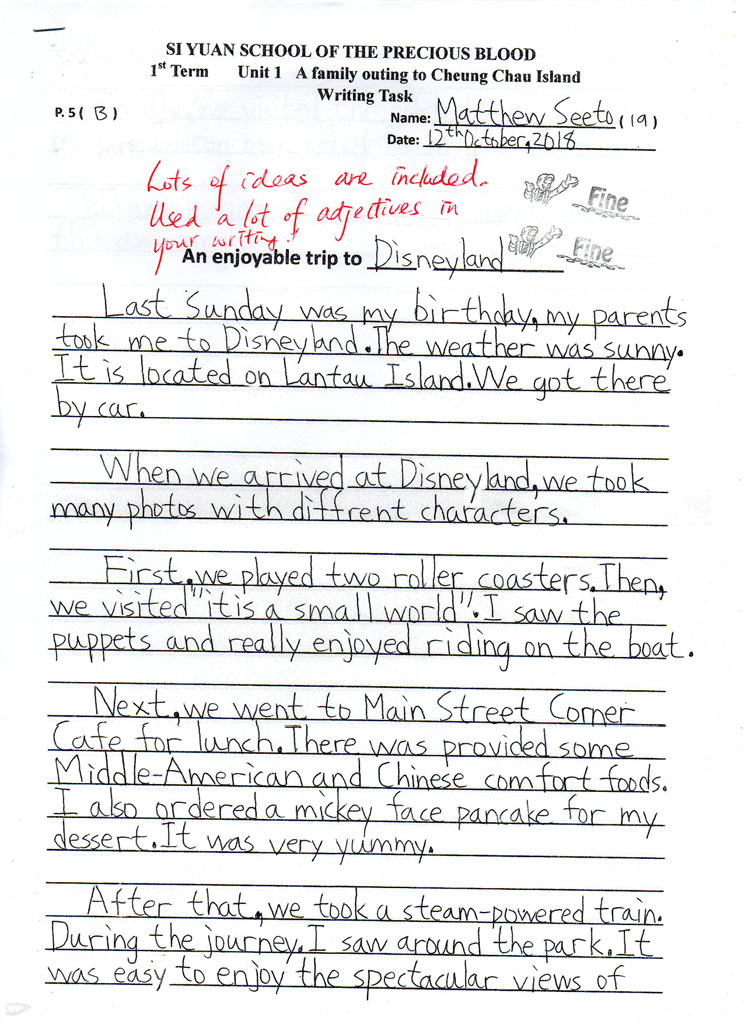 SI YUAN SCHOOL OF THE PRECIOUS BLOOD
1st Term Unit 1 A family outing to Cheung Chau Island
Writing Task
P. 5 ( B )
Name: Matthew Seeto ( 19 )
Date: 12th October, 2018
Lots of ideas are included.
Used a lot of adjectives in
your writing!
Fine
Fine
An enjoyable trip to Disneyland
Last Sunday was my birthday, my parents
took me to Disneyland. The weather was sunny.
It is located on Lantau Island. We got there
by car.
When we arrived at Disneyland, we took
many photos with diffrent characters.
First, we played two roller coasters. Then,
we visited "it is a small world". I saw the
puppets and really enjoyed riding on the boat.
Next, we went to Main Street Corner
Cafe for lunch. There was provided some
Middle-American and Chinese comfort foods.
I also ordered a mickey face pancake for my
dessert. It was very yummy.
After that, we took a steam-powered train.
During the journey. I saw around the park. It
was easy to enjoy the spectacular views of